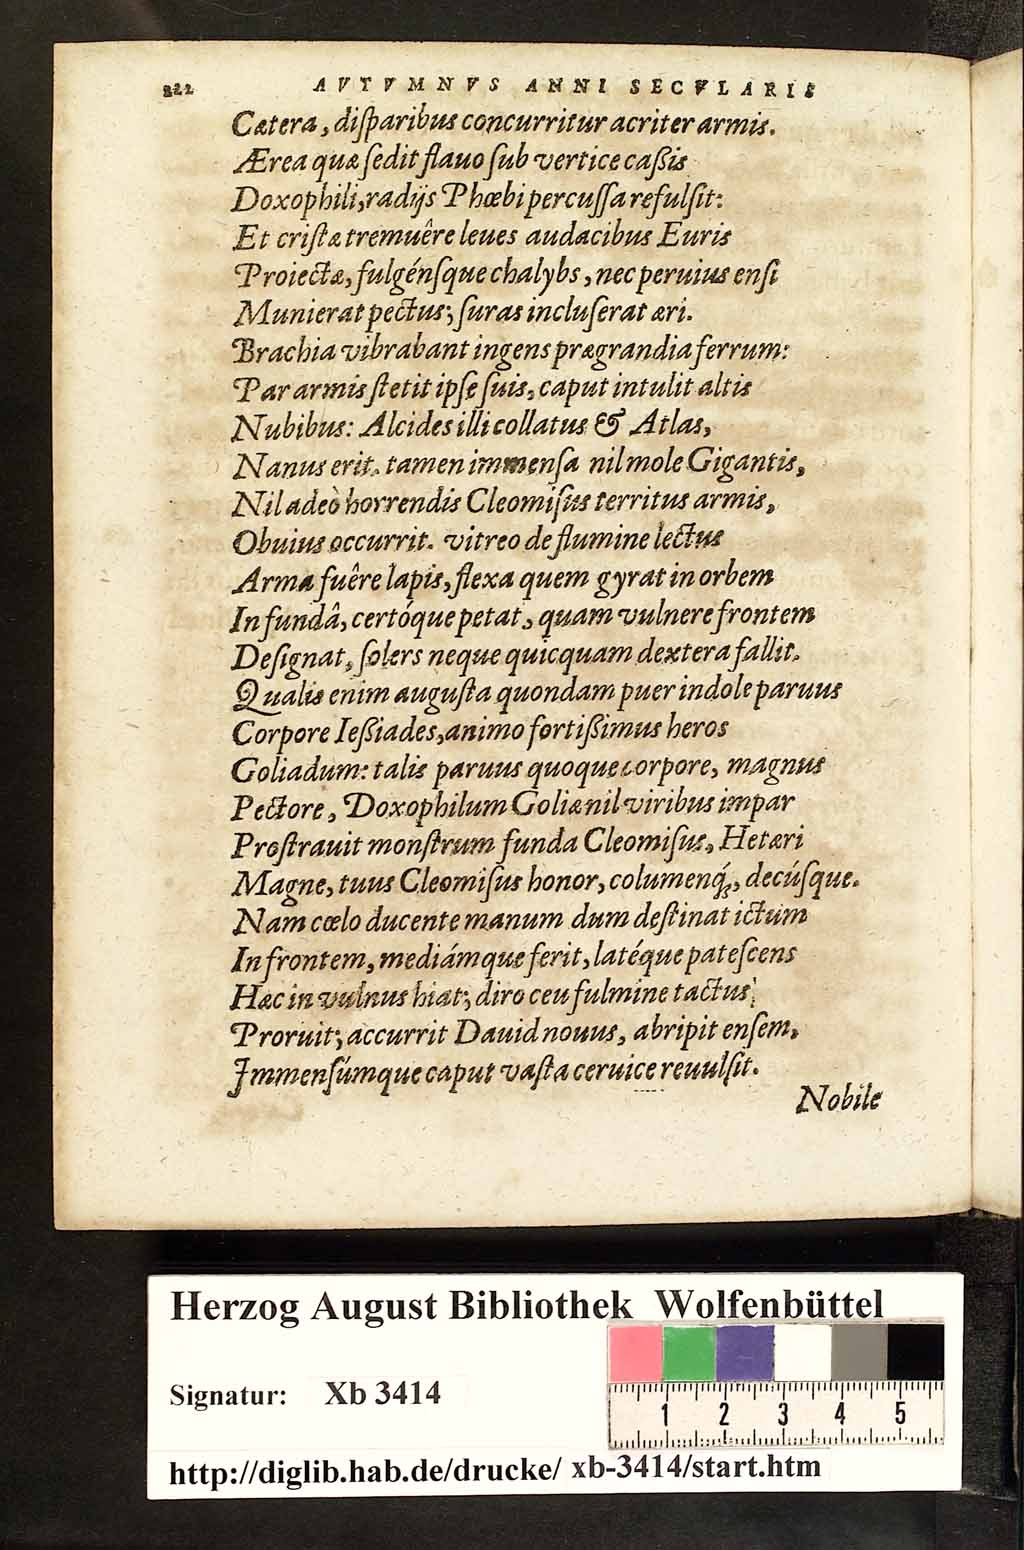 222 AVTVMNVS ANNI SECVLARIS
Cætera, diſparibus concurritur acriter armis.
Ærea quæ ſedit flauo ſub vertice caßis
Doxophili, radijs Phœbi percuſſa refulſit:
Et criſtæ tremuêre leues audacibus Euris
Proiectæ, fulgénſque chalybs, nec peruius enſi
Munierat pectus; ſuras incluſerat æri.
Brachia vibrabant ingens prægrandia ferrum:
Par armis ſtetit ipſe ſuis, caput intulit altis
Nubibus: Alcides illi collatus & Atlas,
Nanus erit. tamen immenſa nil mole Gigantis,
Nil adeò horrendis Cleomiſus territus armis,
Obuius occurrit. vitreo de flumine lectus
Arma fuêre lapis, flexa quem gyrat in orbem
In fundâ, certóque petat, quam vulnere frontem
Deſignat, ſolers neque quicquam dextera fallit.
Qualis enim auguſta quondam puer indole paruus
Corpore Ießiades, animo fortißimus heros
Goliadum: talis paruus quoque corpore, magnus
Pectore, Doxophilum Goliæ nil viribus impar
Proſtrauit monſtrum funda Cleomiſus, Hetæri
Magne, tuus Cleomiſus honor, columenq́, decúſque.
Nam cœlo ducente manum dum deſtinat ictum
In frontem, mediámque ferit, latéque pateſcens
Hæc in vulnus hiat; diro ceu fulmine tactus
Proruit; accurrit Dauid nouus, abripit enſem,
Immenſúmque caput vaſta ceruice reuulſit.
Nobile
Herzog August Bibliothek Wolfenbüttel
Signatur: Xb 3414
1 2 3 4 5
http://diglib.hab.de/drucke/ xb-3414/start.htm